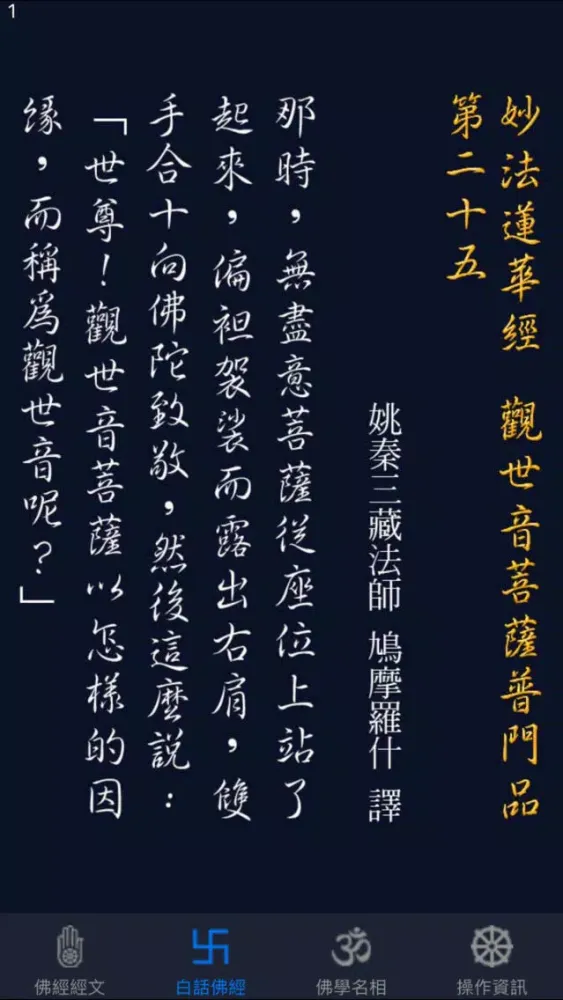 1
妙法蓮華經 觀世音菩薩普門品
第二十五
姚秦三藏法師 鳩摩羅什 譯
那時，無盡意菩薩從座位上站了
起來，偏袒袈裟而露出右肩，雙
手合十向佛陀致敬，然後這麼說：
「世尊！觀世音菩薩以怎樣的因
緣，而稱為觀世音呢？」
佛經經文
白話佛經
佛學名相
操作資訊